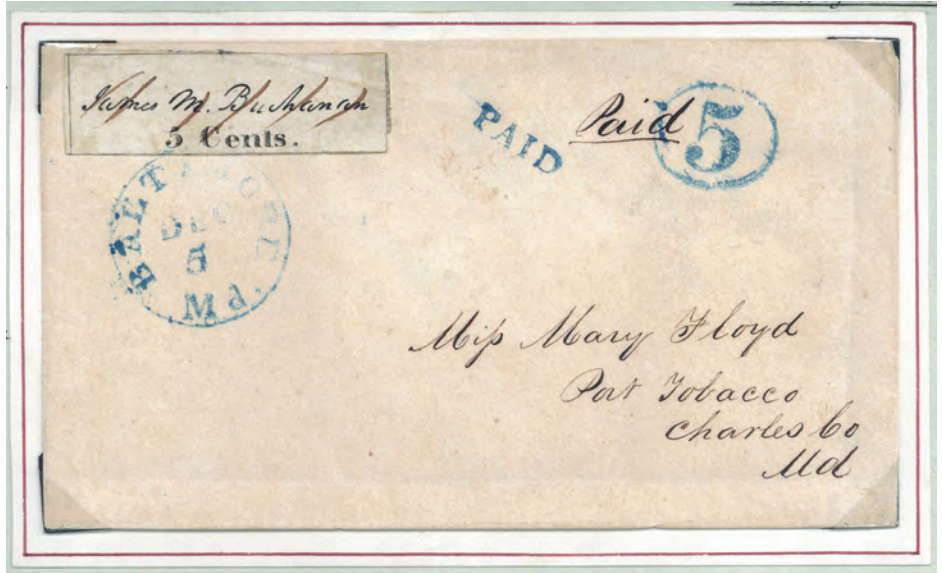 James M. Buchanan
5 Cents.
PAID
Paid
5
BALTIMORE Md.
DEC
5
Miss Mary Floyd
Port Tobacco
Charles Co
Md